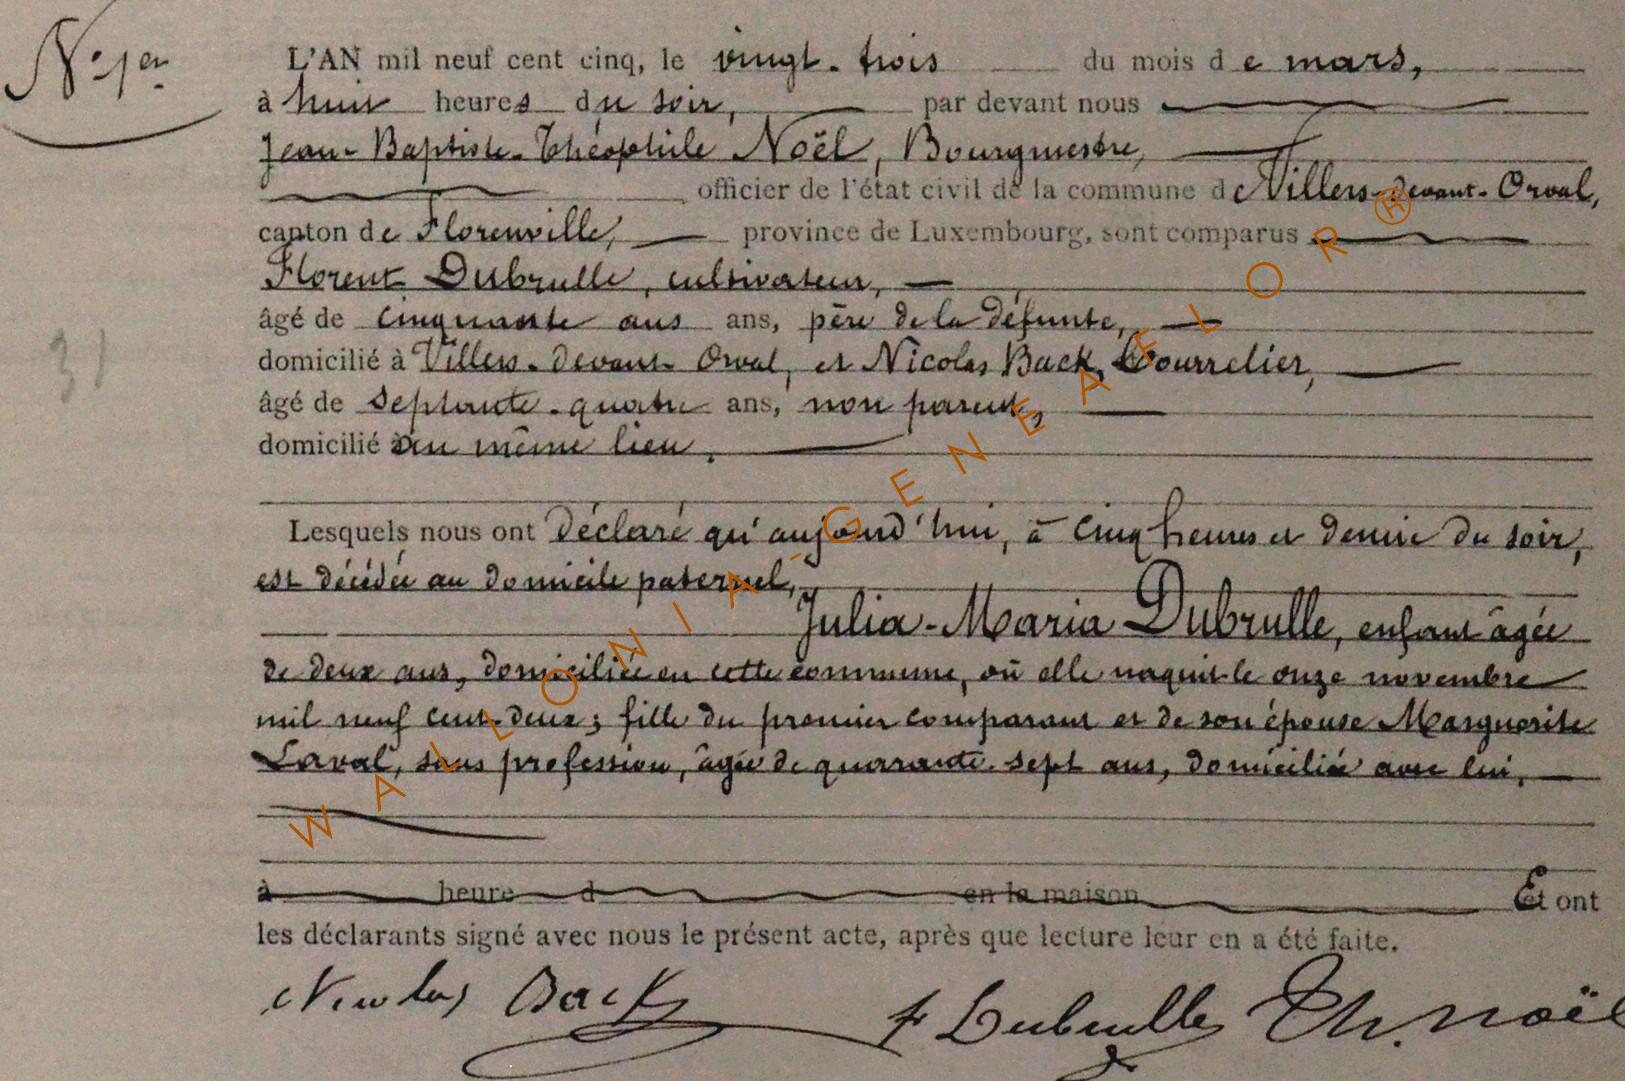 N° 1er
L'AN mil neuf cent cinq, le vingt-trois du mois de mars,
à huit heures du soir, par devant nous
Jean-Baptiste-Théophile Noël, Bourgmestre,
officier de l'état civil de la commune de Villers-devant-Orval,
canton de Florenville, province de Luxembourg, sont comparus
Florent Dubrulle, cultivateur,
âgé de cinquante ans ans, père de la défunte,
domicilié à Villers-devant-Orval, et Nicolas Back, bourrelier,
31
âgé de septante-quatre ans, non parent,
domicilié au même lieu.
Lesquels nous ont déclaré qu'aujourd'hui, à cinq heures et demie du soir,
est décédée au domicile paternel,
Julia-Maria Dubrulle, enfant âgée
de deux ans, domiciliée en cette commune, où elle naquit le onze novembre
mil neuf cent-deux; fille du premier comparant et de son épouse Marguerite
Laval, sans profession, âgée de quarante-sept ans, domiciliée avec lui.
à heure d en la maison Et ont
les déclarants signé avec nous le présent acte, après que lecture leur en a été faite.
Nicolas Back F Dubrulle Th. Noël
WALLONIA-GENEAFLOR®